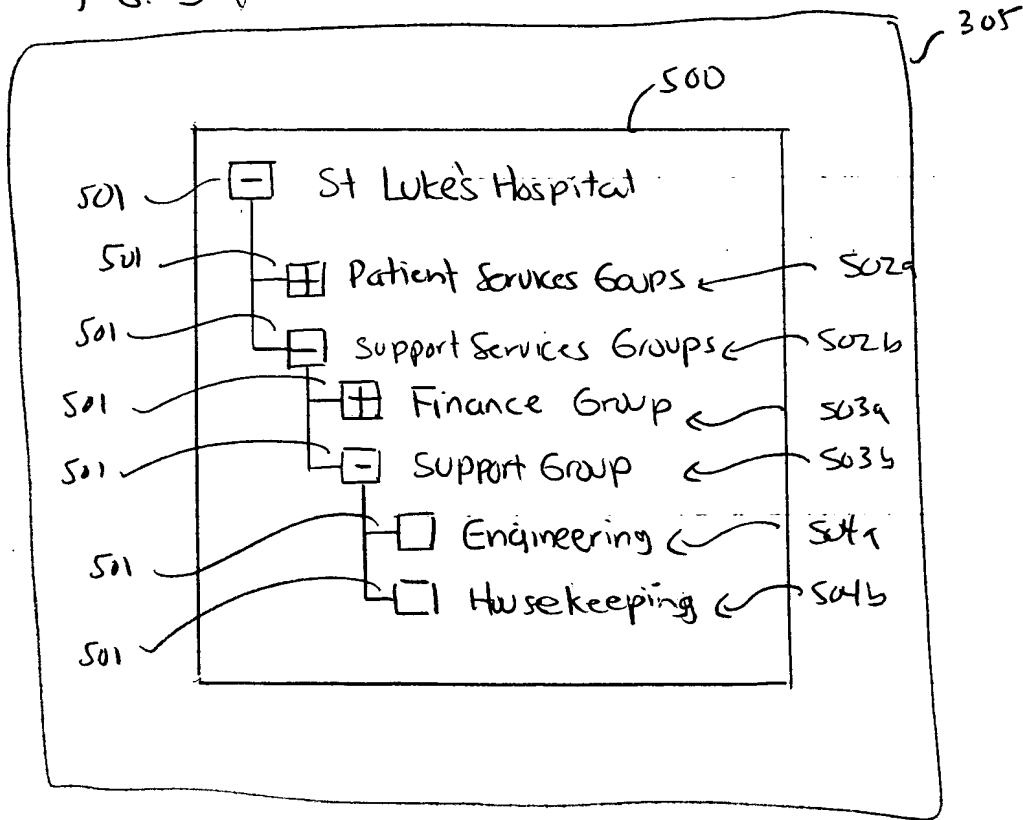 305
500
501 St Luke's Hospital
501 Patient Services Goups 502a
501 Support Services Groups 502b
501 Finance Group 503a
501 Support Group 503b
501 Engineering 504a
501 Housekeeping 504b